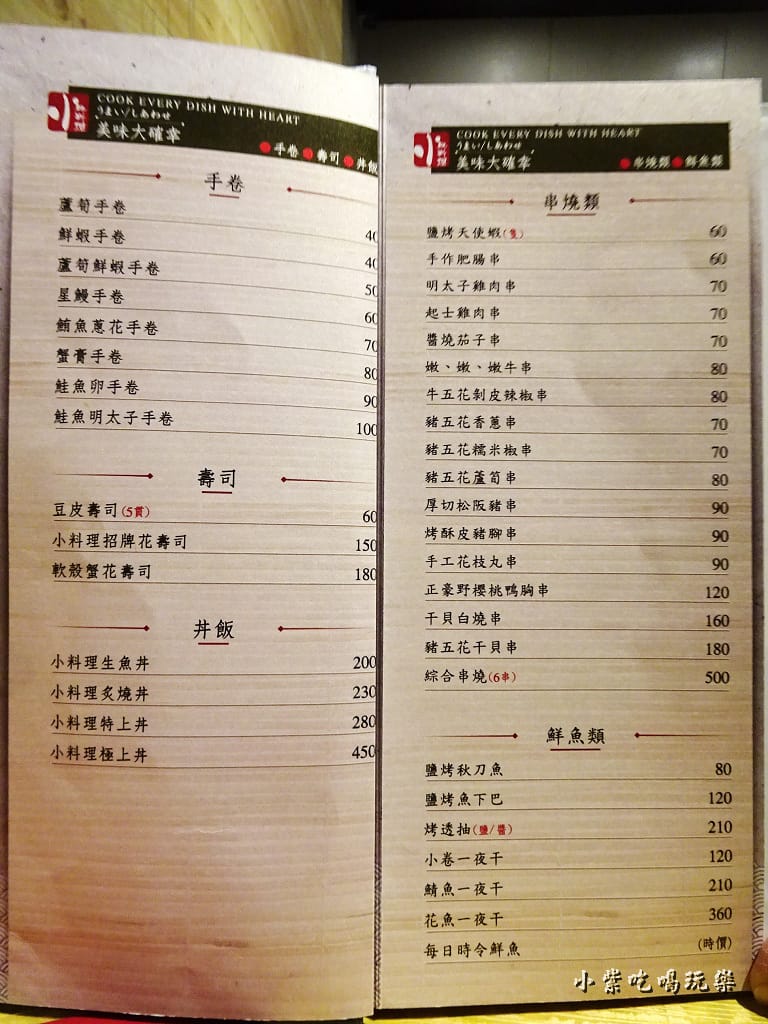 小料理
COOK EVERY DISH WITH HEART
うまい/しあわせ
美味大確幸
手卷 壽司 丼飯
手卷
蘆筍手卷 40
鮮蝦手卷 40
蘆筍鮮蝦手卷 50
星鰻手卷 60
鮪魚蔥花手卷 70
蟹膏手卷 80
鮭魚卵手卷 90
鮭魚明太子手卷 100
壽司
豆皮壽司(5貫) 60
小料理招牌花壽司 150
軟殼蟹花壽司 180
丼飯
小料理生魚丼 200
小料理炙燒丼 230
小料理特上丼 280
小料理極上丼 450
小料理
COOK EVERY DISH WITH HEART
うまい/しあわせ
美味大確幸
串燒類 鮮魚類
串燒類
鹽烤天使蝦(隻) 60
手作肥腸串 60
明太子雞肉串 70
起士雞肉串 70
醬燒茄子串 70
嫩、嫩、嫩牛串 80
牛五花剝皮辣椒串 80
豬五花香蔥串 70
豬五花糯米椒串 70
豬五花蘆筍串 80
厚切松阪豬串 90
烤酥皮豬腳串 90
手工花枝丸串 90
正豪野櫻桃鴨胸串 120
干貝白燒串 160
豬五花干貝串 180
綜合串燒(6串) 500
鮮魚類
鹽烤秋刀魚 80
鹽烤魚下巴 120
烤透抽(鹽/醬) 210
小卷一夜干 120
鯖魚一夜干 210
花魚一夜干 360
每日時令鮮魚 (時價)
小紫吃喝玩樂